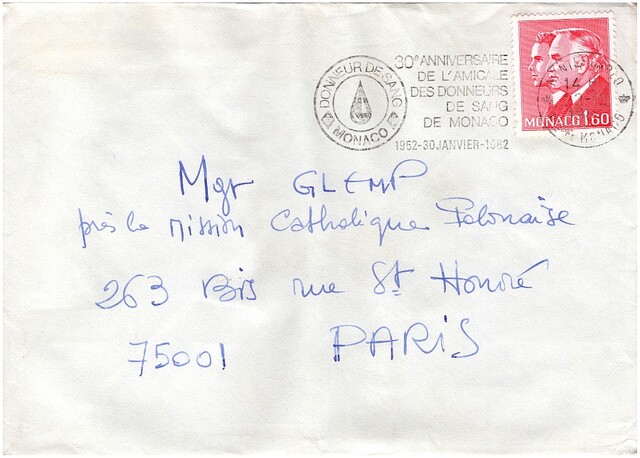 DONNEUR DE SANG
MONACO
30e ANNIVERSAIRE
DE L'AMICALE
DES DONNEURS
DE SANG
DE MONACO
1952-30 JANVIER-1982
MONACO 1,60
MONTE-CARLO
Pte DE MONACO
Mgr GLEMP
près la Mission Catholique Polonaise
263 Bis rue St Honoré
75001 PARIS